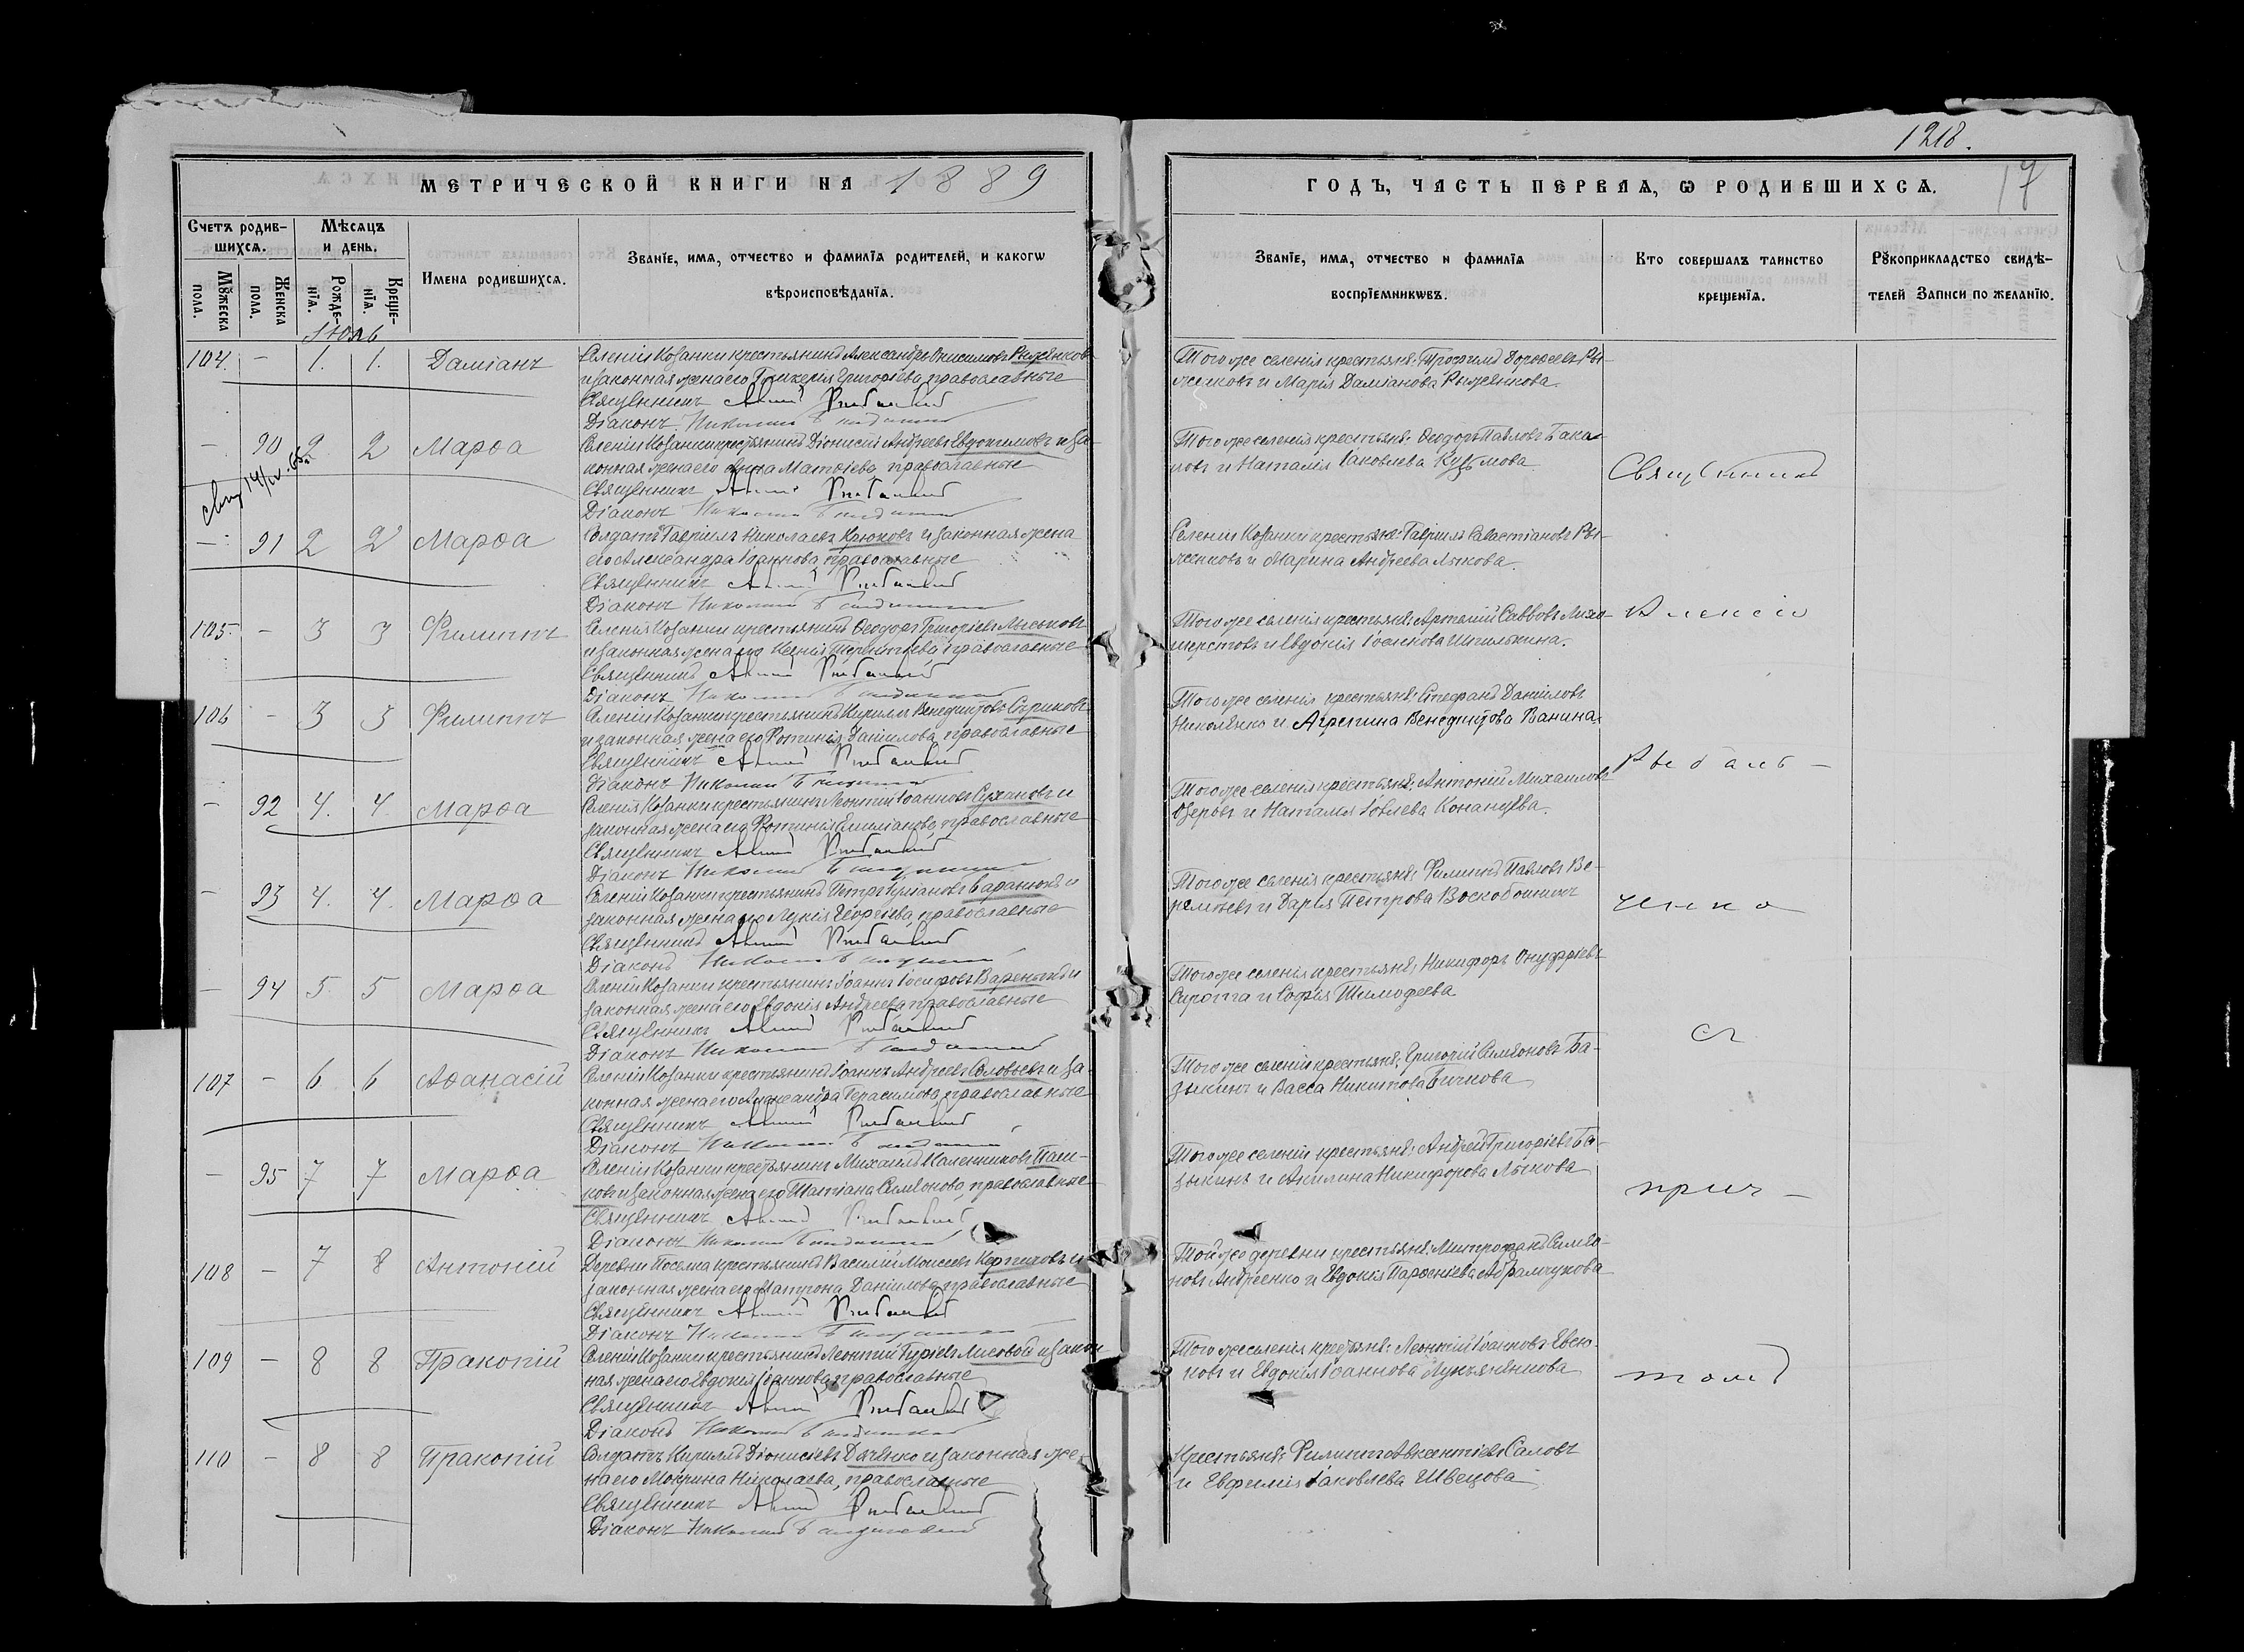 1218.
17
МЕТРИЧЕСКОЙ КНИГИ НА 1889
ГОДЪ, ЧАСТЬ ПЕРВАЯ, Ѡ РОДИВШИХСѦ.
Счетъ родив-
шихсѧ.
Мѣсѧцъ
и день.
Мꙋжеска
пола.
Женска
пола.
Рожде-
нїѧ.
Креще-
нїѧ.
Имена родившихсѧ.
Званїе, имѧ, отчество и фамилїѧ родителей, и какогѡ
вѣроисповѣданїѧ.
Званїе, имѧ, отчество и фамилїѧ
воспрїемникѡвъ.
Кто совершалъ таинство
крещенїѧ.
Рꙋкоприкладство свидѣ-
телей записи по желанїю.
Іюль
104. - 1. 1. Даміанъ
Селенія Козанки крестьянинъ Александръ Онисимовъ Рыженковъ
и законная жена его Гликерія Григоріева, православные
Священникъ
Діаконъ Николай
Того же селенія крестьяне: Трофимъ Дорофеевъ Ры-
женковъ и Марія Даміанова Рыженкова.
- 90 2 2 Марѳа
Селенія Козанки крестьянинъ Діонисій Андреевъ Евдокимовъ и за-
конная жена его Анна Матѳіева, православные
Священникъ
Діаконъ Николай
Того же селенія крестьяне: Ѳеодоръ Павловъ Бака-
новъ и Наталія Іаковлева Кузьмова
Священникъ
- 91 2 2 Марѳа
Солдатъ Гавріилъ Николаевъ Крюковъ и законная жена
его Александра Іоаннова, православные
Священникъ
Діаконъ Николай
Селенія Козанки крестьяне: Гавріилъ Савастіановъ Ры-
женковъ и Марина Андреева Лыкова.
Алексій
105. - 3 3 Филиппъ
Селенія Козанки крестьянинъ Ѳеодоръ Григоріевъ Лыськовъ
и законная жена его Ксенія Терентіева, православные
Священникъ
Діаконъ Николай
Того же селенія крестьяне: Артемій Саввовъ Лихо-
шерстовъ и Евдокія Іоаннова Шпилькина.
106 - 3 3 Филиппъ
Селенія Козанки крестьянинъ Кириллъ Венедиктовъ Сыриковъ
и законная жена его Фотинія Даніилова, православные
Священникъ
Діаконъ Николай
Того же селенія крестьяне: Стефанъ Даніиловъ
Николенко и Агрепина Венедиктова Ванина
Рыбаль-
- 92 4. 4. Марѳа
Селенія Козанки крестьянинъ Леонтій Іоанновъ Сухановъ и
законная жена его Фотинія Емиліанова, православные
Священникъ
Діаконъ Николай
Того же селенія крестьяне: Антоній Михаиловъ
Озеровъ и Наталія Іовлева Конанцева.
- 93 4. 4. Марѳа
Селенія Козанки крестьянинъ Петръ Баранюкъ и
законная жена его Лукія Георгіева, православные
Священникъ
Діаконъ Николай
Того же селенія крестьяне: Филиппъ Павловъ Ве-
ремѣевъ и Дарія Петрова Воскобойникъ
ченко
- 94 5 5 Марѳа
Селенія Козанки крестьянинъ Іоаннъ Іосифовъ Вареныкъ и
законная жена его Евдокія Андреева, православные
Священникъ
Діаконъ Николай
Того же селенія крестьяне, Никифоръ Онуфріевъ
Сирота и Софія Тимоѳеева
съ
107 - 6 6 Аѳанасій
Селенія Козанки крестьянинъ Іоаннъ Андреевъ Соловьевъ и за-
конная жена его Александра Герасимова, православные
Священникъ
Діаконъ Николай
Того же селенія крестьяне: Григорій Симеоновъ Ба-
зыкинъ и Васса Никитова Бичкова
- 95 7 7 Марѳа
Селенія Козанки крестьянинъ Михаилъ Каленниковъ Паш-
ковъ и законная жена его Татіана Симеонова, православные
Священникъ
Діаконъ Николай
Того же селенія крестьяне: Андрей Григоріевъ Ба-
зыкинъ и Акилина Никифорова Лыкова
прич-
108 - 7 8 Антоній
Деревни крестьянинъ Василій Моисеевъ Керпиковъ и
законная жена его Матрона Даніилова, православные
Священникъ
Діаконъ Николай
Той же деревни крестьяне: Митрофанъ Симео-
новъ Андреенко и Евдокія Парѳеніева Абрамчукова
109 - 8 8 Пракопій
Селенія Козанки крестьянинъ Леонтій Гуріевъ Лисовой и закон
ная жена его Евдокія Іоаннова, православные
Священникъ
Діаконъ Николай
Того же селенія крестьяне: Леонтій Іоанновъ Евсю-
ковъ и Евдокія Іоаннова Лукьяненкова
томъ
110 - 8 8 Пракопій
Солдатъ Кириллъ Діонисіевъ Дяченко и законная же-
на его Мокрина Николаева, православные
Священникъ
Діаконъ Николай
Крестьяне: Филиппъ Авксентіевъ Саловъ
и Евфимія Іаковлева Швецова